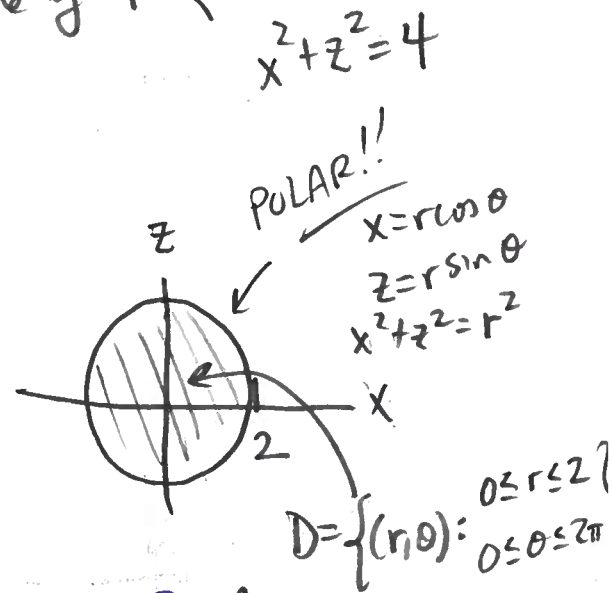 x²+z²=4
POLAR!!
x=rcosθ
z=rsinθ
x²+z²=r²
z
x
2
D={(r,θ): 0≤r≤2
0≤θ≤2π